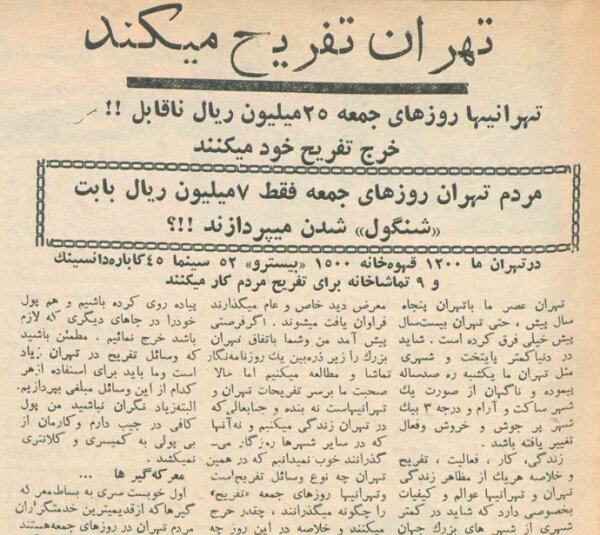 تهران تفریح میکند
تهرانیها روزهای جمعه ۲۵میلیون ریال ناقابل !!
خرج تفریح خود میکنند
مردم تهران روزهای جمعه فقط ۷میلیون ریال بابت
«شنگول» شدن میپردازند !!؟
درتهران ما ۱۲۰۰ قهوه‌خانه ۱۵۰۰ «بیسترو» ۵۲ سینما ۴۵ کاباره‌دانسینك
و ۹ تماشاخانه برای تفریح مردم کار میکنند
تهران عصر ما باتهران پنجاه
سال پیش ، حتی تهران بیست‌سال
پیش خیلی فرق کرده است . شاید
در دنیاکمتر پایتخت و شهری
مثل تهران ما یکشبه ره صدساله
پیموده و ناگهان از صورت یك
شهر ساکت و آرام و درجه ۳ بیك
شهر پر جوش و خروش وفعال
تغییر یافته باشد .
زندگی، کار ، فعالیت ، تفریح
و خلاصه هریك از مظاهر زندگی
تهران و تهرانیها عوالم و کیفیات
بخصوصی دارد که شاید در کمتر
شهری از شهر های بزرگ جهان
معرض دید خاص و عام میگذارند
فراوان یافت میشوند . اگرفرصتی
پیش آمد من وشما باتفاق تهران
بزرگ را زیر ذره‌بین یك روزنامه‌نگار
تماشا و مطالعه میکنیم اما حالا
صحبت ما برسر تفریحات تهران و
تهرانیهاست نه بنده و جنابعالی‌که
در تهران زندگی میکنیم و نه‌آنها
که در سایر شهرها روزگار می‌ـ
گذرانند خوب نمیدانیم که در همین
تهران چه نوع وسائل تفریح‌است
وتهرانیها روزهای جمعه «تفریح»
را چگونه میگذرانند ، چقدر خرج
میکنند و خلاصه در این روز چه
پیاده روی کرده باشیم و هم پول
خودرا در جاهای دیگری که لازم
باشد خرج نمائیم . مطمئن باشید
که وسائل تفریح در تهران زیاد
است وما باید برای استفاده ازهر
کدام از این وسائل مبلغی بپردازیم.
البته‌زیاد نگران نباشید من پول
کافی در جیب دارم وکارمان از
بی پولی به کمیسری و کلانتری
نمیکشد .
معرکه‌گیر ها ...
اول خوبست سری به بساط‌معرکه
گیرهاکه ازقدیمترین خدمتگزاران
مردم تهران در روزهای جمعه‌هستند